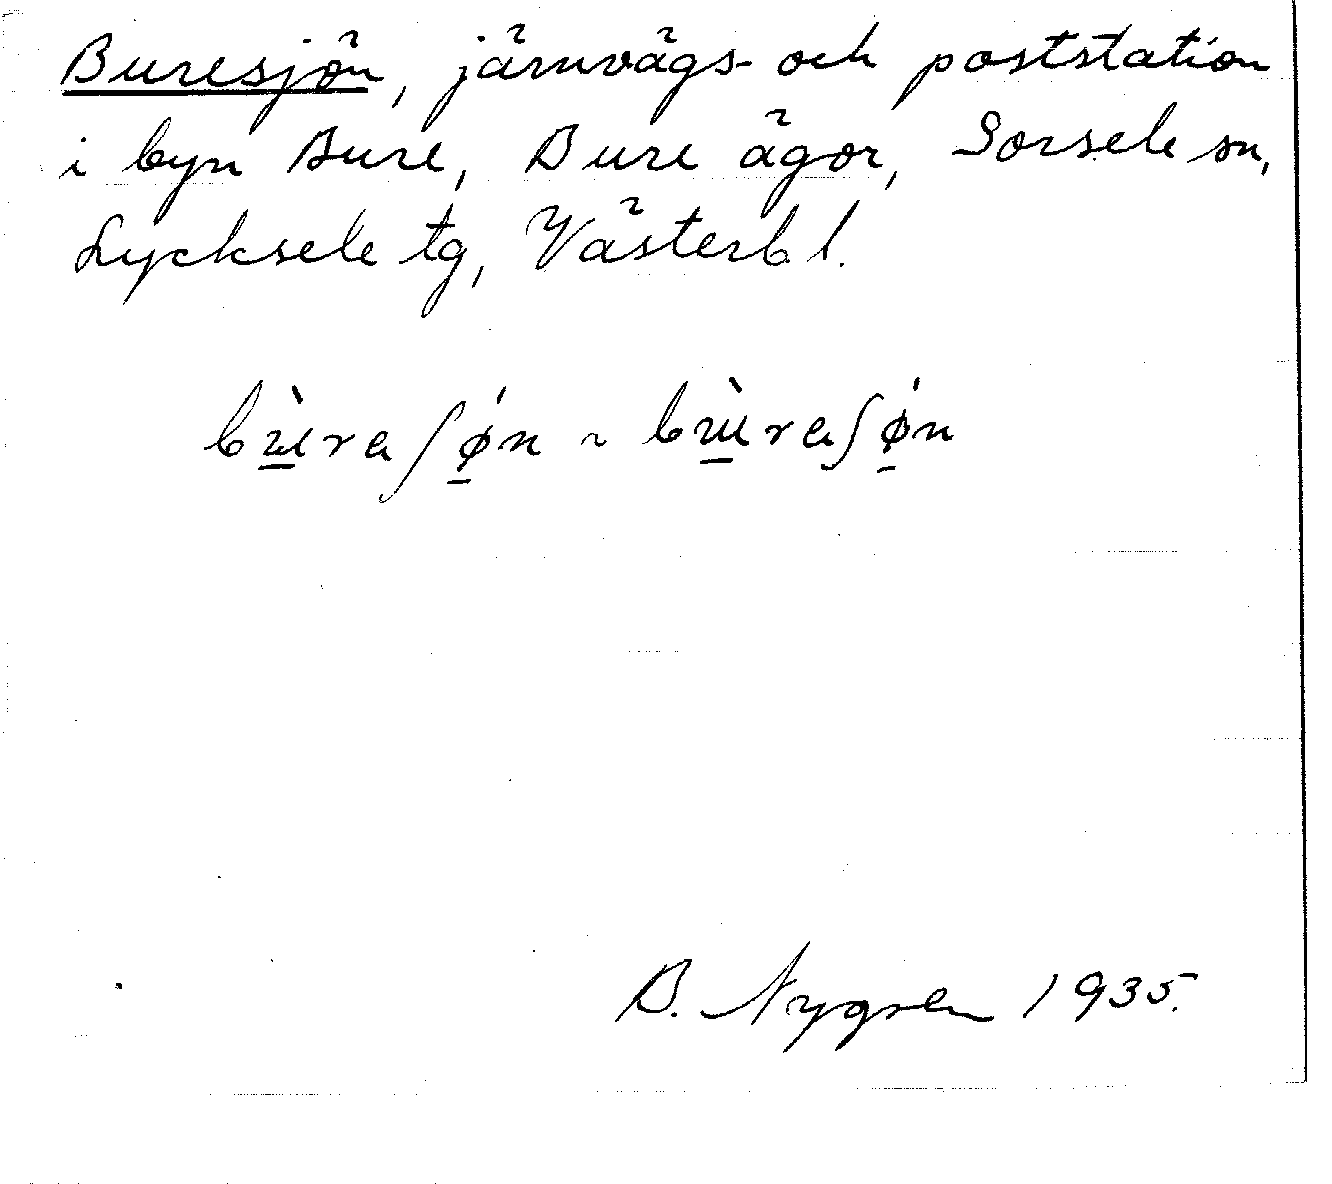 Buresjön, järnvägs- och poststation
i byn Bure, Bure ägor, Sorsele sn,
Lycksele tg, Västerb l.
bɯ̱̀raʃǿ̱n ~ bɯ̱̀raʃǿ̱n
B. Nygren 1935.